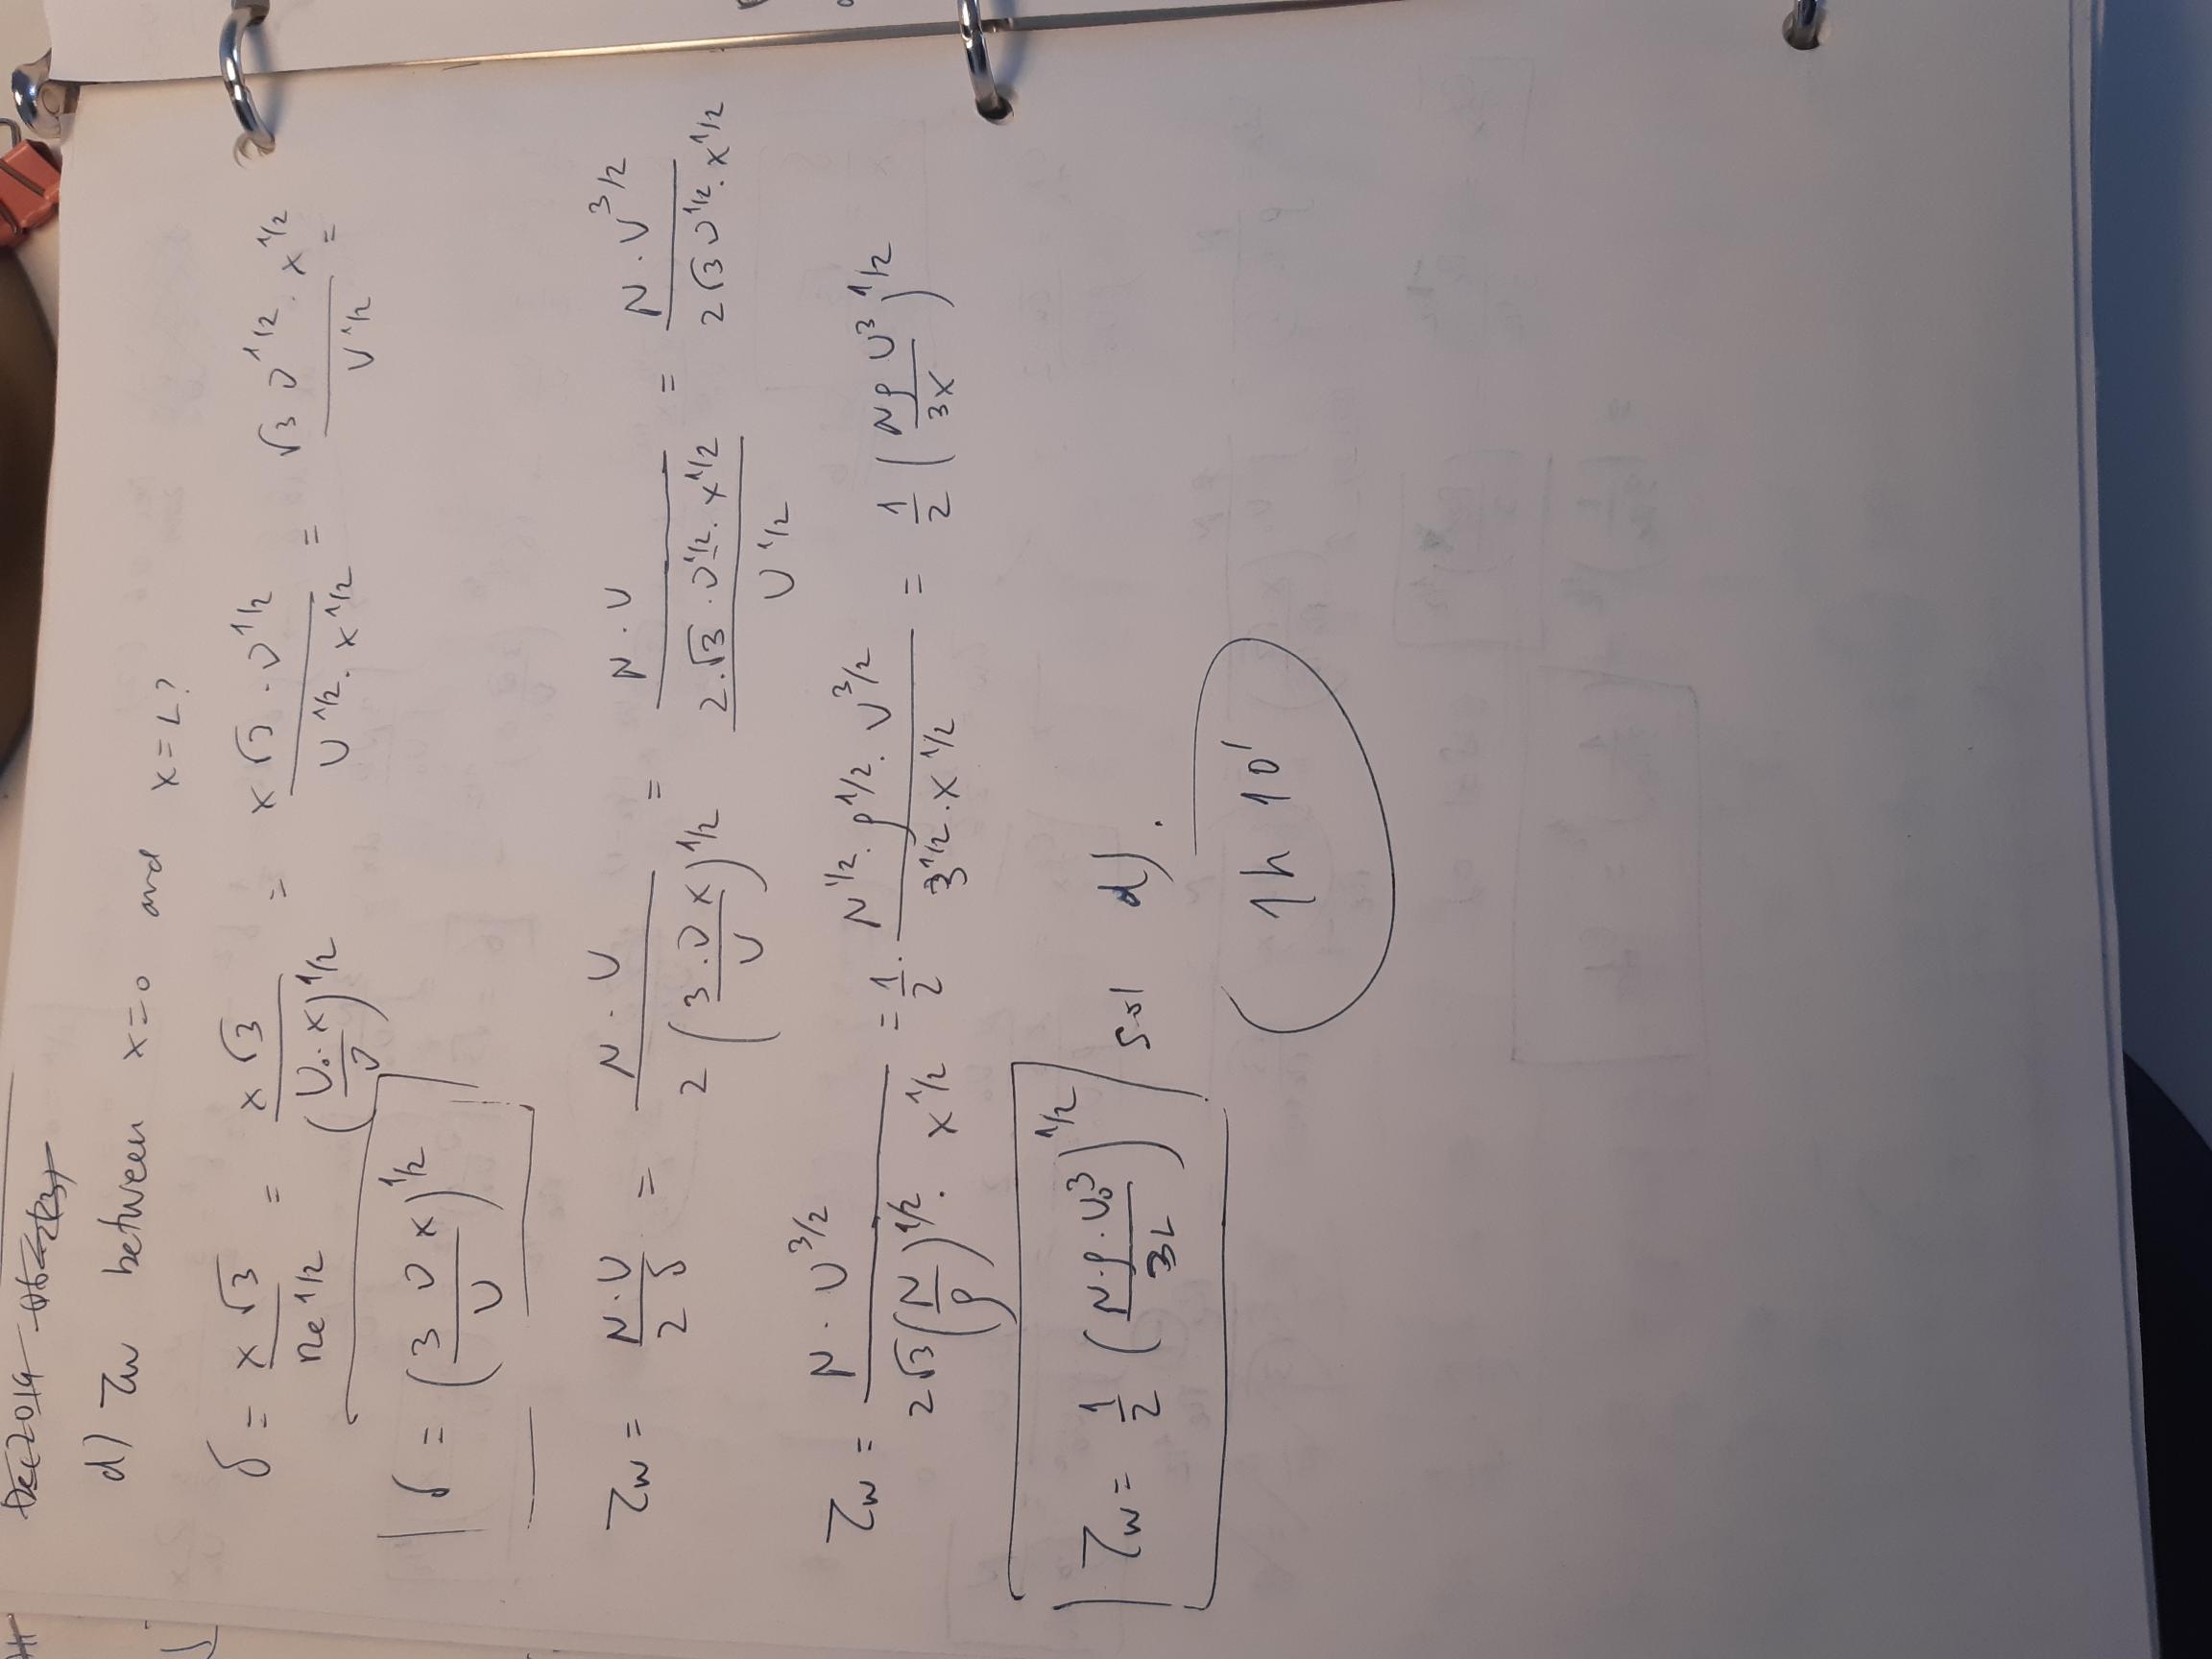 Dec 2019 Q6 2(3)
d) τw between x=0 and x=L?
δ = x √3 / Re^1/2 = x √3 / (U₀·x / ν)^1/2 = x √3 · ν^1/2 / U^1/2 · x^1/2 = √3 ν^1/2 · x^1/2 / U^1/2 =
δ = (3 ν x / U)^1/2
τw = μ·U / 2 δ = μ·U / 2 (3·ν x / U)^1/2 = μ·U / (2·√3·ν^1/2·x^1/2 / U^1/2) = μ·U^3/2 / 2√3 ν^1/2·x^1/2
τw = μ·U^3/2 / 2√3 (μ/ρ)^1/2 · x^1/2 = 1/2 · μ^1/2·ρ^1/2·U^3/2 / 3^1/2·x^1/2 = 1/2 (μρ U^3 / 3x)^1/2
τw = 1/2 (μ·ρ·U₀^3 / 3L)^1/2 sol d).
1h 10'